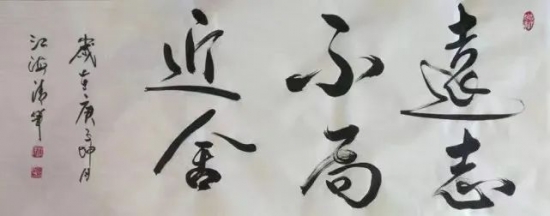 遠志
不局
近舍
歲在庚子仲月
江海濤筆